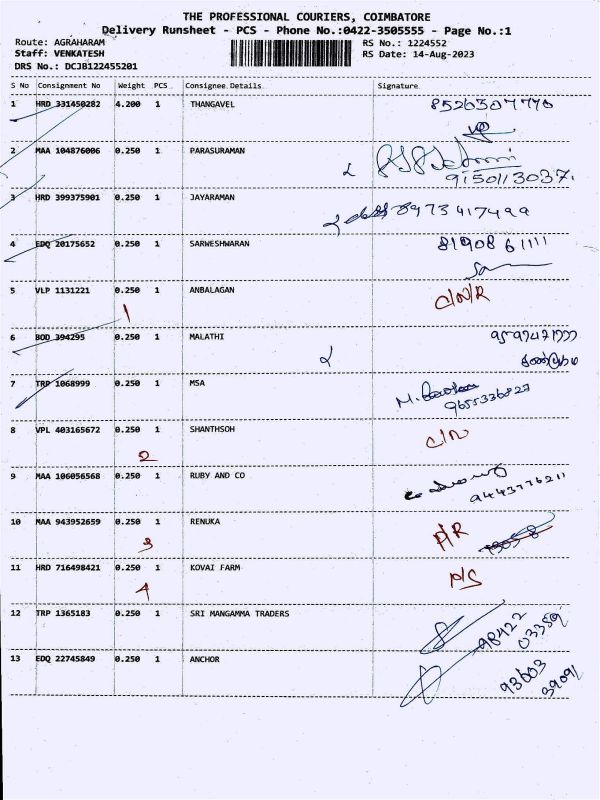 THE PROFESSIONAL COURIERS, COIMBATORE
Delivery Runsheet - PCS - Phone No.:0422-3505555 - Page No.:1
Route: AGRAHARAM RS No.: 1224552
Staff: VENKATESH RS Date: 14-Aug-2023
DRS No.: DCJB122455201
S No Consignment No Weight PCS Consignee Details Signature
1 HRD 331450282 4.200 1 THANGAVEL 8526307770
2 MAA 104876006 0.250 1 PARASURAMAN
9150113037.
3 HRD 399375901 0.250 1 JAYARAMAN 8973417499
4 EDQ 20175652 0.250 1 SARWESHWARAN 81908 61111
5 VLP 1131221 0.250 1 ANBALAGAN C/N/R
1
6 BOD 394295 0.250 1 MALATHI
7 TRP 1068999 0.250 1 MSA
9655336827
8 VPL 403165672 0.250 1 SHANTHSOH C/N
2
9 MAA 106056568 0.250 1 RUBY AND CO
9443776211
10 MAA 943952659 0.250 1 RENUKA P/R
3
11 HRD 716498421 0.250 1 KOVAI FARM P/S
4
12 TRP 1365183 0.250 1 SRI MANGAMMA TRADERS
98422
03359
13 EDQ 22745849 0.250 1 ANCHOR
93603
39091